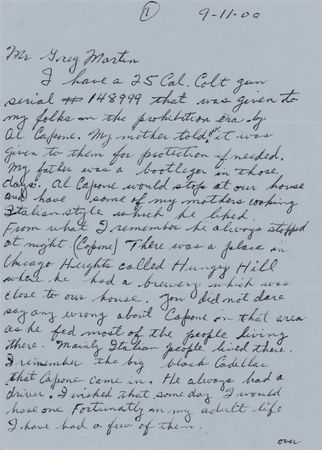 1
9-11-00
Mr Greg Martin
I have a 25 Cal. Colt gun
serial # 148999 that was given to
my folks in the prohibition era by
Al Capone. My mother told it was
given to them for protection if needed.
My father was a bootleger in those
days. Al Capone would stop at our house
and have some of my mothers cooking
Italian style which he liked.
From what I remember he always stopped
at night (Capone) There was a place in
Chicago Heights called Hungry Hill
where he had a brewery which was
close to our house. You did not dare
say any wrong about Capone in that area
as he fed most of the people living
there. Mainly Italian people lived there.
I remember the big black Cadellac
that Capone came in. He always had a
driver. I wished that some day I would
have one. Fortunatly in my adult life
I have had a few of them.
over